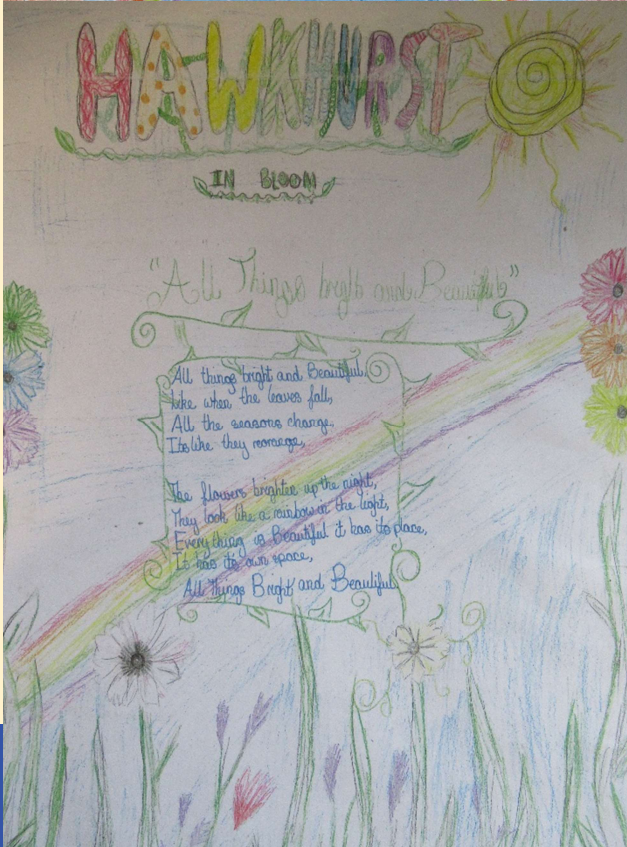 HAWKHURST
IN BLOOM
"All Things bright and Beautiful"
All things bright and Beautiful,
Like when the leaves fall,
All the seasons change.
Its like they rearrange,
The flowers brighten up the night,
They look like a rainbow in the light,
Everything is Beautiful it has its place,
It has its own space,
All Things Bright and Beautiful